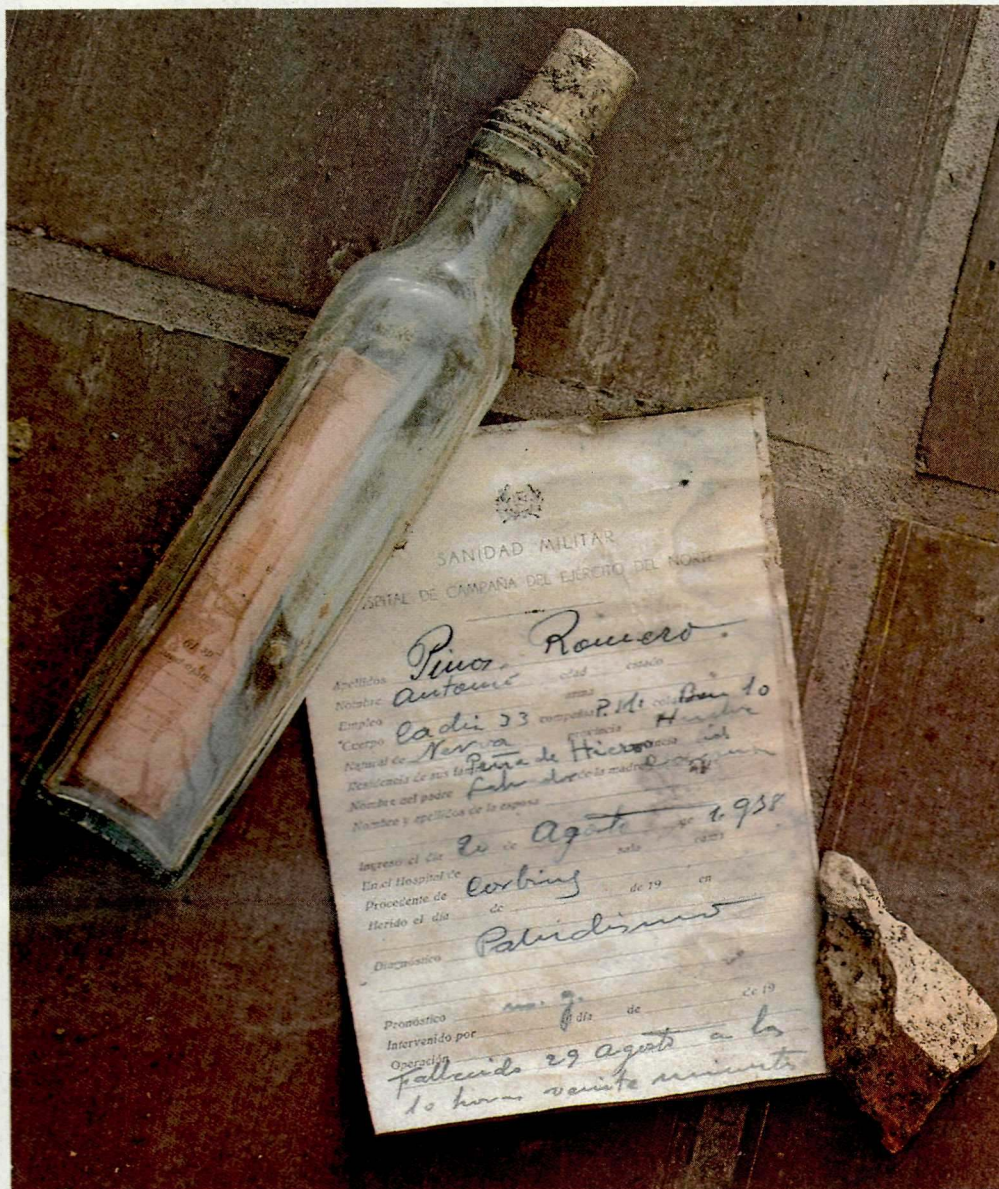 SANIDAD MILITAR
SPITAL DE CAMPAÑA DEL EJERCITO DEL NORTE
Apellidos Pinos Romero.
Nombre Antonio edad estado
Empleo arma
Cuerpo Cadiz 33 compañia P.M. Bón 10
Natural de Nerva provincia Huelva
Residencia de sus Peña de Hierro
Nombre del padre de la madre
Nombre y apellidos de la esposa
Ingreso el día 20 de Agosto de 1.938
En el Hospital de sala cama
Procedente de Corbins
Herido el día de de 19 en
Diagnóstico Paludismo
Pronóstico m. g.
Intervenido por día de de 19
Operación
Fallecido 29 Agosto a las
10 horas veinte minutos